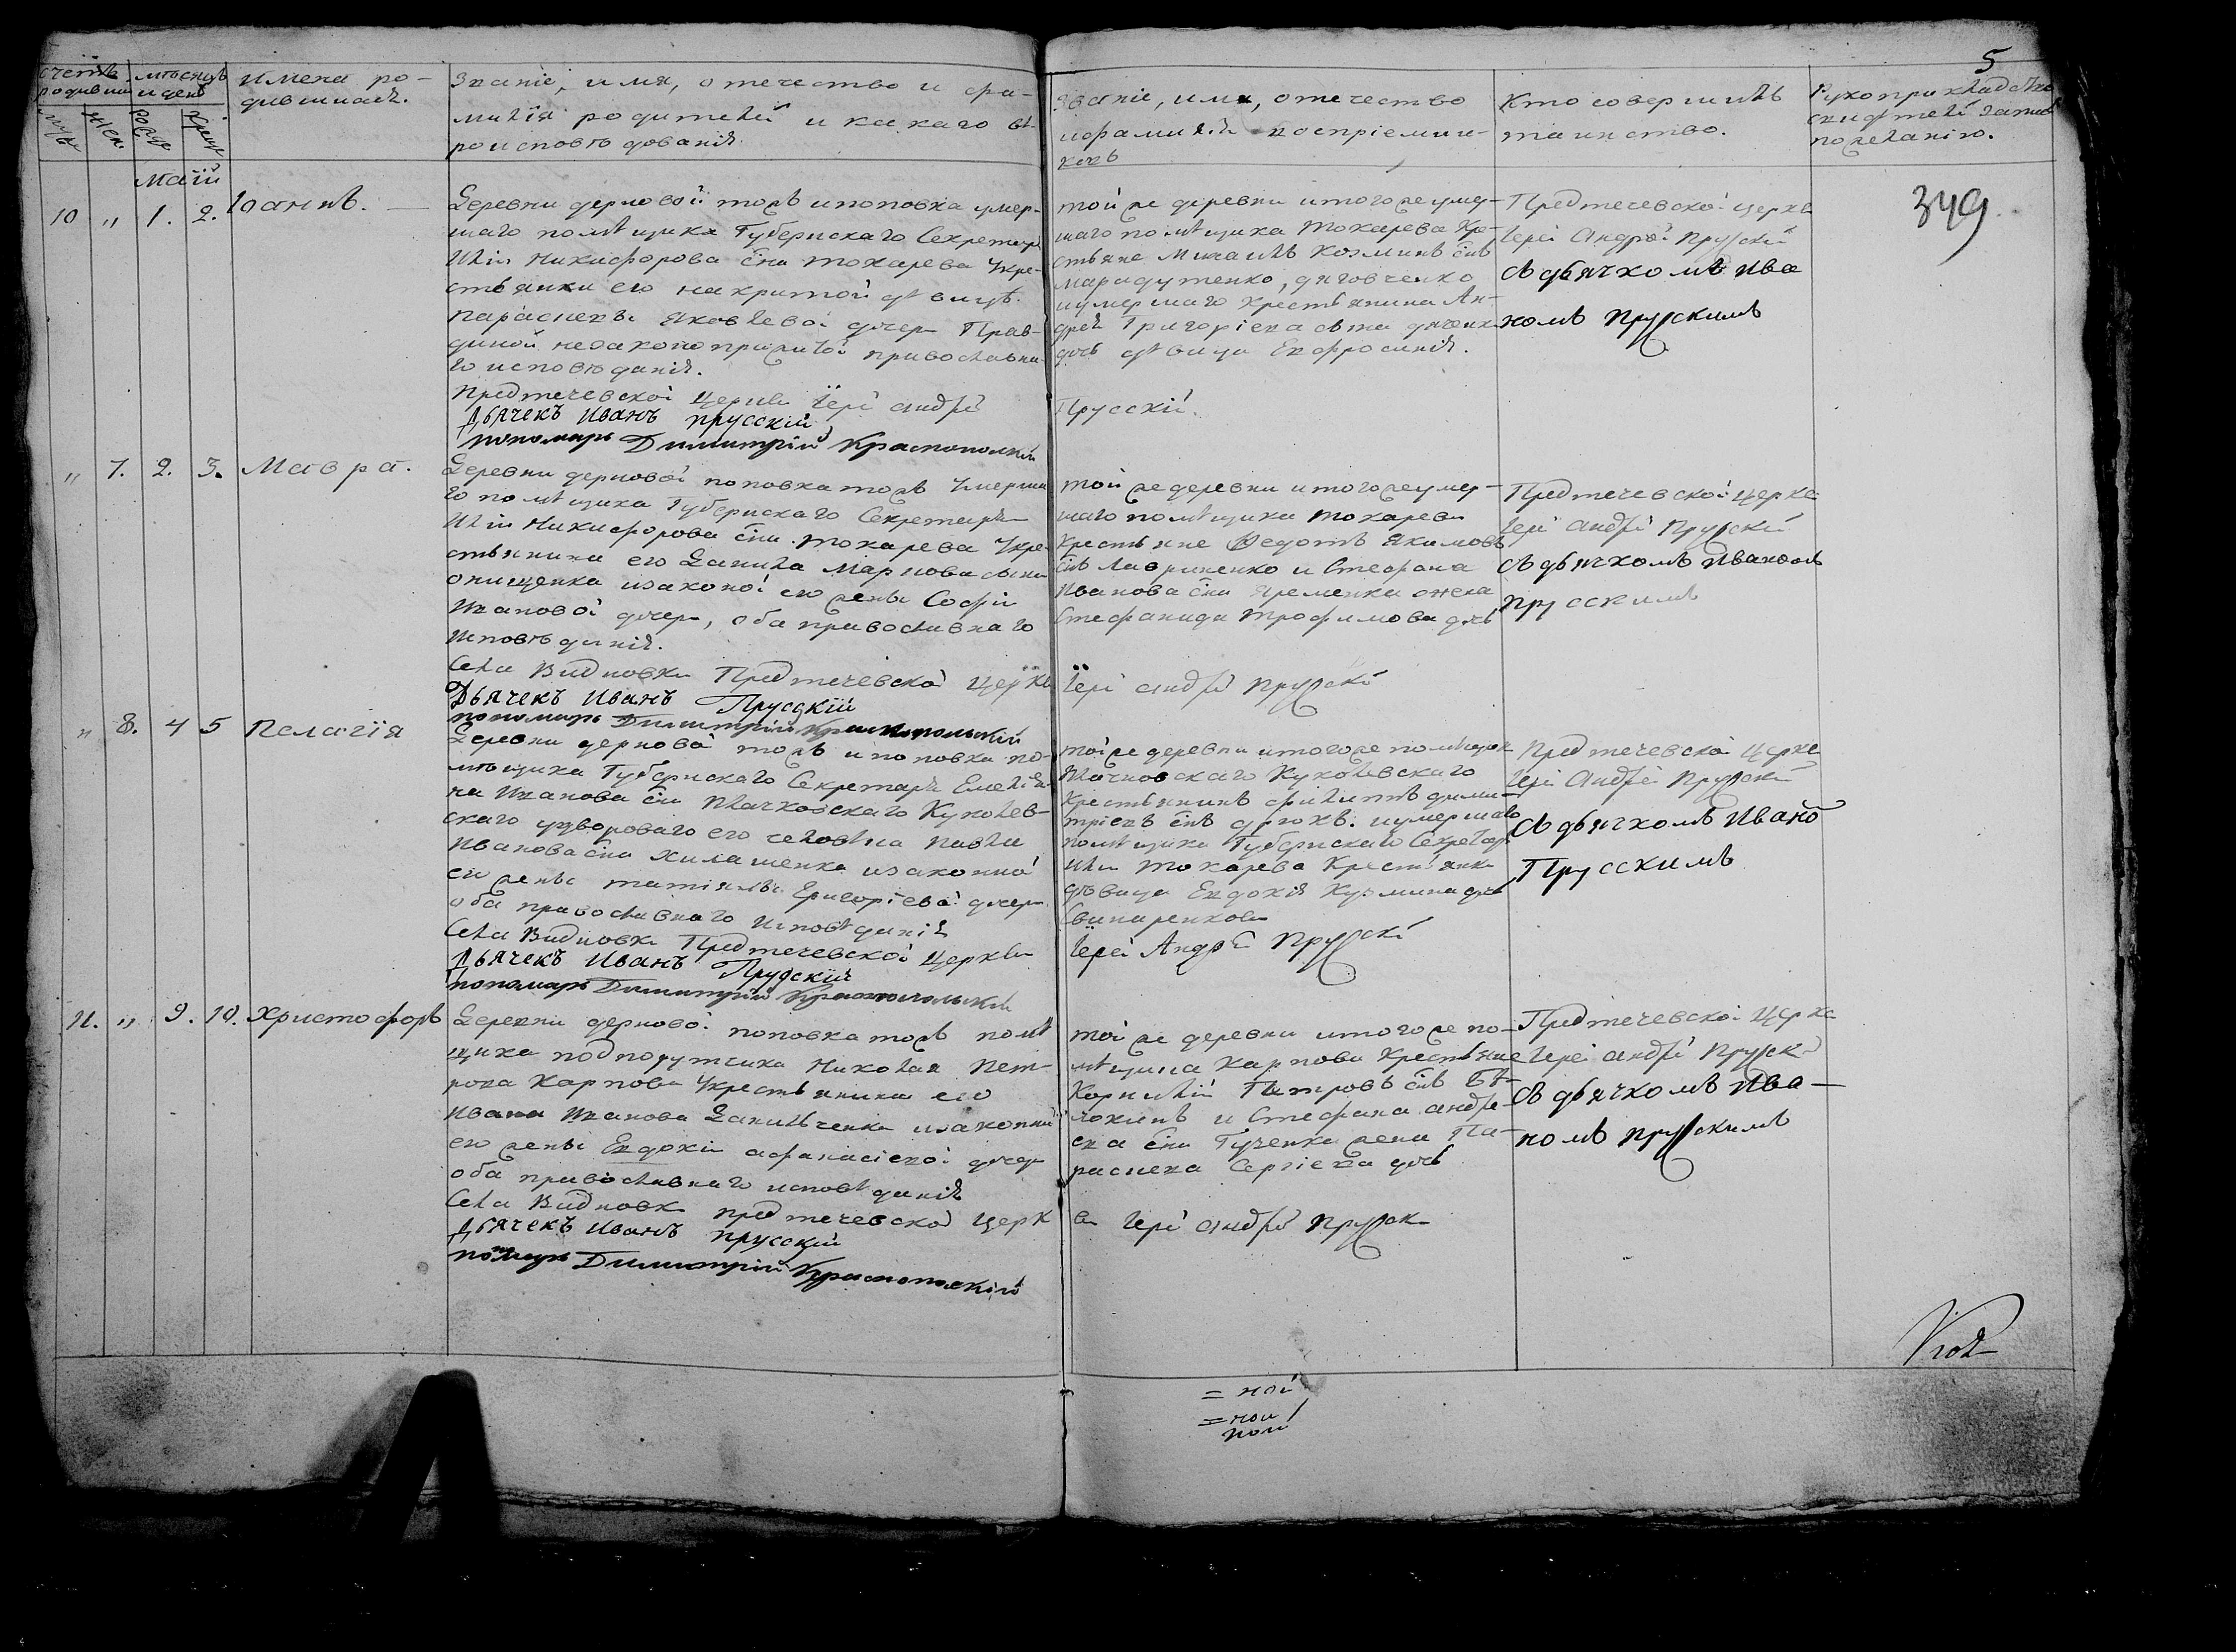 5
Счетъ родившихся
мѣсяцъ и день
Имена родившихся.
Званіе, имя, отечество и фа-
милія родителей и какаго вѣ-
роисповѣдованія.
Званіе, имя, отечество
и фамилія воспріемни-
ковъ
Кто совершилъ
таинство.
Рукоприкладство
свидѣтелей записи
по желанію.
Маій
349
10 " 1. 2. Іоаннъ.
Деревни дерновой тожъ и поповка умер-
шаго помѣщика Губернскаго Секретаря
Иліи Никифорова сна Токарева у кре-
стьянки его накритой дѣвицѣ
Параскевы Яковлевой дочери Прав-
диной незаконоприжитой православна-
го исповѣданія.
Предтечевской церкви Іерей Андрей
Прусскій.
Дьячекъ Иванъ Прусскій
пономарь Димитрій Краснопольскій
той же деревни и того же умер-
шаго помѣщика Токарева кре-
стьяне Михаилъ Козминъ снъ
и умершаго крестьянина Ан-
дрея Григоріева сына
дочь дѣвица Евфросинія.
Предтечевской церкви
Іерей Андрей Прусскій
съ дьячкомъ Ива
номъ Прусскимъ
" 7. 2. 3. Мавра.
Деревни дерновой поповка тожъ умерша
го помѣщика Губернскаго Секретаря
Иліи Никифорова сна Токарева у кре-
стьянина его Данила Маркова сына
Онищенка и законой его жены Софіи
Ивановой дочери, оба православнаго
исповѣданія.
Села Видновки Предтечевской церкви
Іерей Андрей Прусскій
Дьячекъ Иванъ Прусскій
пономарь Димитрій Краснопольскій
той же деревни и того же умер-
шаго помѣщика Токарева
крестьяне Федотъ Якимовъ
снъ Лавриненко и Стефана
Иванова сна Яременка жена
Стефанида Трофимова дочь
Предтечевской церкви
Іерей Андрей Прусскій
съ дьячкомъ Иваномъ
Прусскимъ
" 8. 4 5 Пелагія
Деревни дерновой тожъ и поповка по-
мѣщика Губернскаго Секретаря Емелья-
на Иванова сна Плачковскаго Куколев-
скаго у двороваго его человѣка Павла
Иванова сна Хилашенка и законной
его жены Татіяны Григоріевой дочери
оба православнаго исповѣданія
Села Видновки Предтечевской церкви
Іерей Андрей Прусскій
Дьячекъ Иванъ Прусскій
пономарь Димитрій Краснопольскій
той же деревни и того же помѣщика
Плачковскаго Куколевскаго
крестьянинъ Филипъ Дими-
тріевъ снъ и умершаго
помѣщика Губернскаго Секретаря
Иліи Токарева крестьянка
дѣвица Евдокія Кузмина дочь
Свинаренкова
Предтечевской церкви
Іерей Андрей Прусскій
съ дьячкомъ Ивано
Прусскимъ
11. " 9. 10. Христофоръ
Деревни дерновой поповка тожъ помѣ
щика подпорутчика Николая Пет-
рова Карпова у крестьянина его
Ивана Иванова Данильченка и законной
его жены Евдокіи Афанасіевой дочери
оба православнаго исповѣданія
Села Видновки Предтечевской церк
ви Іерей Андрей Прусскій
Дьячекъ Иванъ Прусскій
пономарь Димитрій Краснопольскій
той же деревни и того же по-
мѣщика Карпова крестьяне
Корнилій Петровъ снъ Бѣ-
локинъ и Стефана Андре-
ева сна Гученка жена Па-
раскева Сергіева дочь
Предтечевской церкви
Іерей Андрей Прусскій
съ дьячкомъ Ива-
номъ Прусскимъ
= ной
= ной
ной